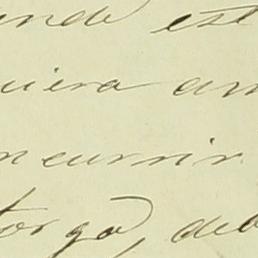 ande est
uiera am
ncurrir
torga, deb